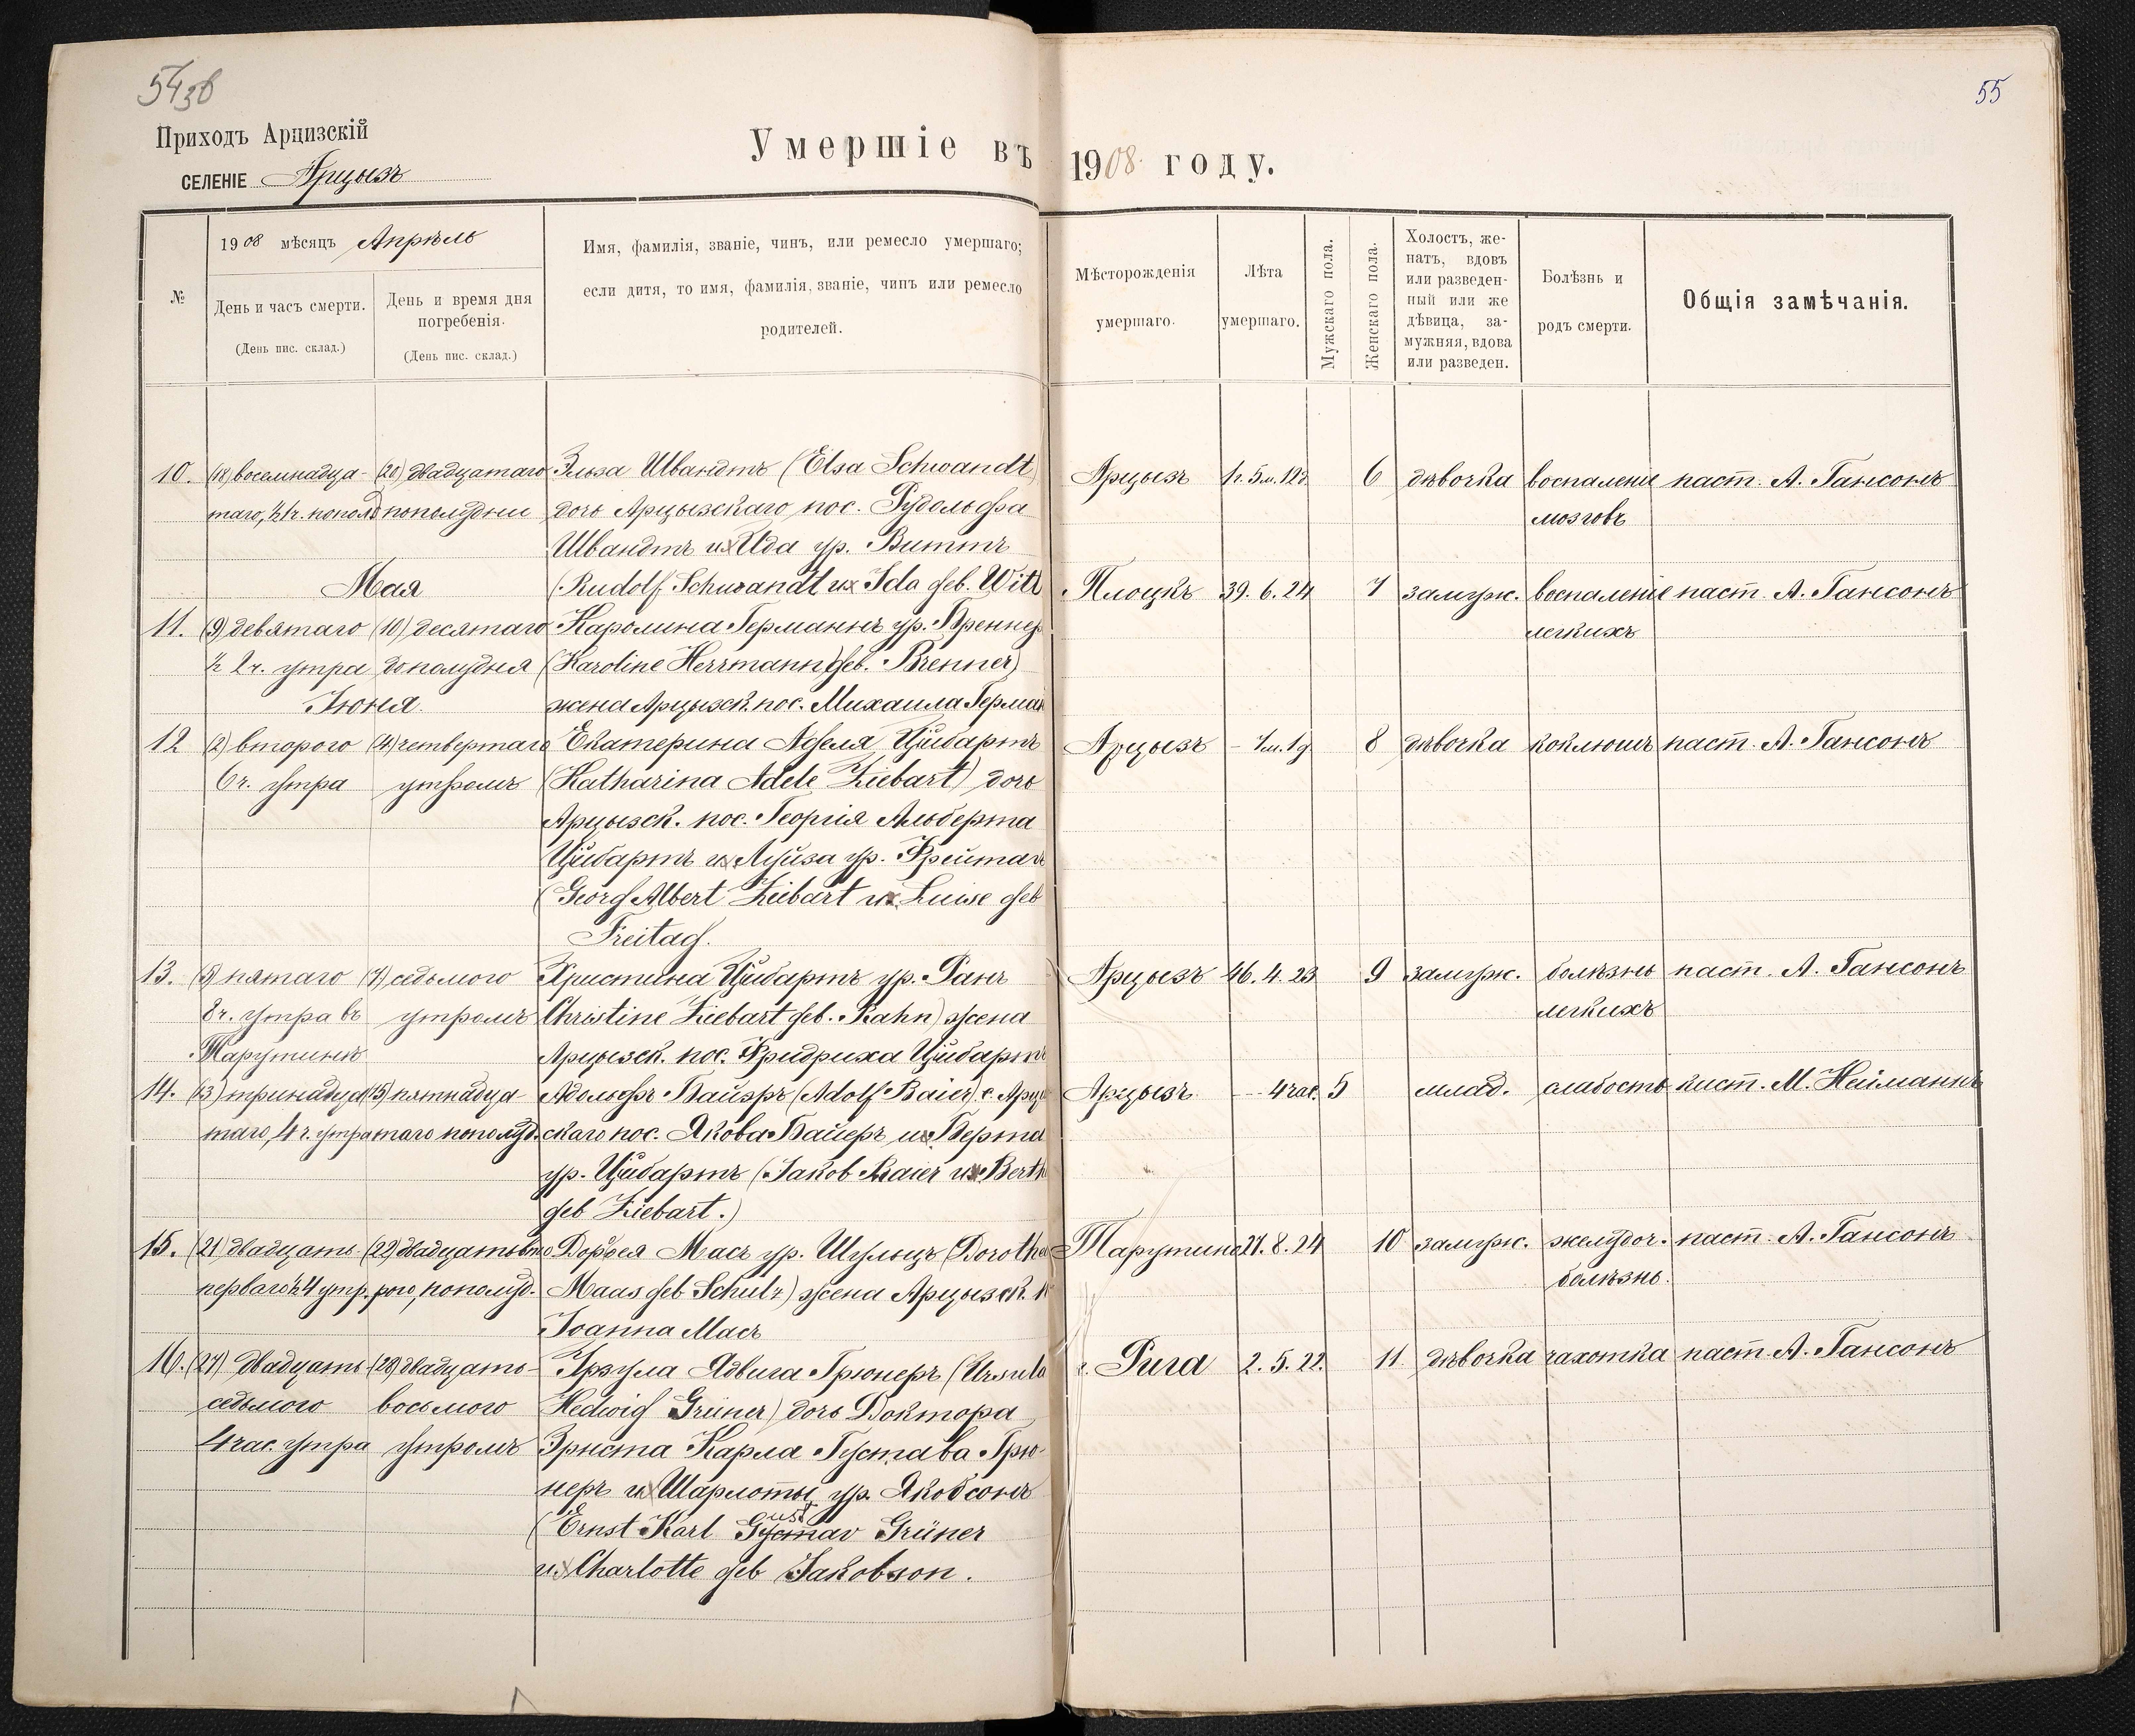 54зв
55
Приходъ Арцизскій
СЕЛЕНІЕ Арцызъ
Умершіе въ 1908 году.
№
1908 мѣсяцъ Апрѣль
День и часъ смерти.
(День пис. склад.)
День и время дня
погребенія.
(День пис. склад.)
Имя, фамилія, званіе, чинъ, или ремесло умершаго;
если дитя, то имя, фамилія, званіе, чинъ или ремесло
родителей.
Мѣсторожденія
умершаго.
Лѣта
умершаго.
Мужскаго пола.
Женскаго пола.
Холостъ, же-
натъ, вдовъ
или разведен-
ный или же
дѣвица, за-
мужняя, вдова
или разведен.
Болѣзнь и
родъ смерти.
Общія замѣчанія.
10. (18) восемнадца- (20) двадцатаго Эльза Швандтъ (Elsa Schwandt) Арцызъ 1г. 5м. 12д. 6 дѣвочка воспаленіе паст. А. Гансонъ
таго, ½1ч. пополд пополудни дочь Арцызскаго пос. Рудольфа мозговъ
Швандтъ и Ида ур. Виттъ
Мая (Rudolf Schwandt u Ida geb. Witt Плоцкъ 39. 6. 24 7 замуж. воспаленіе паст. А. Гансонъ
11. (9) девятаго (10) десятаго Каролина Германнъ ур. Бреннер легкихъ
½ 2ч. утра до полудня (Karoline Herrmann geb. Brenner)
Іюня. жена Арцызск. пос. Михаила Герман
12 (2) второго (4) четвертаго Екатерина Адель Цибартъ Арцызъ - 7м. 1д 8 дѣвочка коклюшъ паст. А. Гансонъ
6ч. утра утромъ (Katharina Adele Ziebart) дочь
Арцызск. пос. Георгія Альберта
Цибартъ и Луиза ур. Фрейтаг
(Georg Albert Ziebart u Luise geb
Freitag.
13. (5) пятаго (7) седьмого Христина Цибартъ ур. Ранъ Арцызъ 46. 4. 23 9 замуж. болѣзнь паст. А. Гансонъ
8ч. утра въ утромъ Christine Ziebart geb. Rahn) жена легкихъ
Тарутинѣ Арцызск. пос. Фридриха Цибартъ
14. (13) тринадца (15) пятнадца- Адольфъ Байеръ (Adolf Baier) с. Арцы Арцызъ - - 4 час. 5 млад. слабость кист. М. Нейманнъ
таго, 4 ч. утра таго пополуд. скаго пос. Якова Байеръ и Берта
ур. Цибартъ (Jakob Baier u Berth
geb Ziebart.)
15. (21) двадцать (22) двадцатьвто Доротея Масъ ур. Шульцъ (Dorothea Тарутино 27. 8. 24 10 замуж. желудоч. паст. А. Гансонъ
перваго ½4 утр. рого, пополуд. Maas geb Schulz) жена Арцызск. п болѣзнь.
Іоанна Масъ
16. (27) двадцать- (28) двадцать- Урзула Ядвига Грюнеръ (Ursula г. Рига 2. 5. 22. 11. дѣвочка чахотка паст. А. Гансонъ
седьмого восьмого Hedwig Grüner) дочь Доктора
4 час. утра утромъ Эрнста Карла Густава Грю-
неръ и Шарлоты ур. Якобсонъ
(Ernst Karl Gustav Grüner
u Charlotte geb Jakobson.